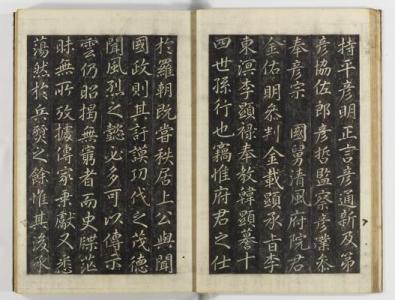 持平彦明正言彦通新及第
彦協佐郎彦哲監察彦參
奉彦宗 國舅清風府院君
金佑明參判金載顯承旨李
東溟李顯祿奉教韓顯謩十
四世孫行也竊惟府君之仕
於羅朝既嘗秩居上公與聞
國政則其訏謨功代之茂德
聞風烈之懿必多可以傳示
雲仍昭揭無窮者而史牒茫
昧無所攷據傳家乗獻又悉
蕩然於兵燹之餘惟其後承